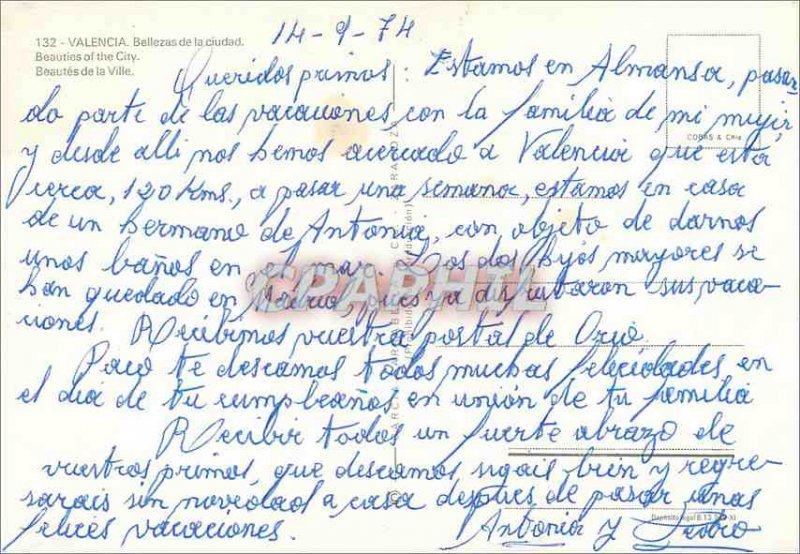 14-9-74
132 - VALENCIA. Bellezas de la ciudad.
Beauties of the City.
Beautés de la Ville.
Queridos primos: Estamos en Almansa, pasan-
do parte de las vacaciones con la familia de mi mujer
y desde alli nos hemos acercado a Valencia que está
cerca, 120 Kms., a pasar una semana, estamos en casa
de un hermano de Antonia, con objeto de darnos
unos baños en el mar. Los dos hijos mayores se
han quedado en Madrid, pues ya disfrutaron sus vaca-
ciones. Recibimos vuestra postal de Orio.
Paco te deseamos todos muchas felicidades en
el dia de tu cumpleaños en unión de tu familia
Recibir todos un fuerte abrazo de
vuestros primos, que deseamos sigais bien y regre-
sarais sin novedad a casa despues de pasar unas
felices vacaciones. Antonia y Pedro
COBAS & Cia
CPAPHIL
Depósito legal B.